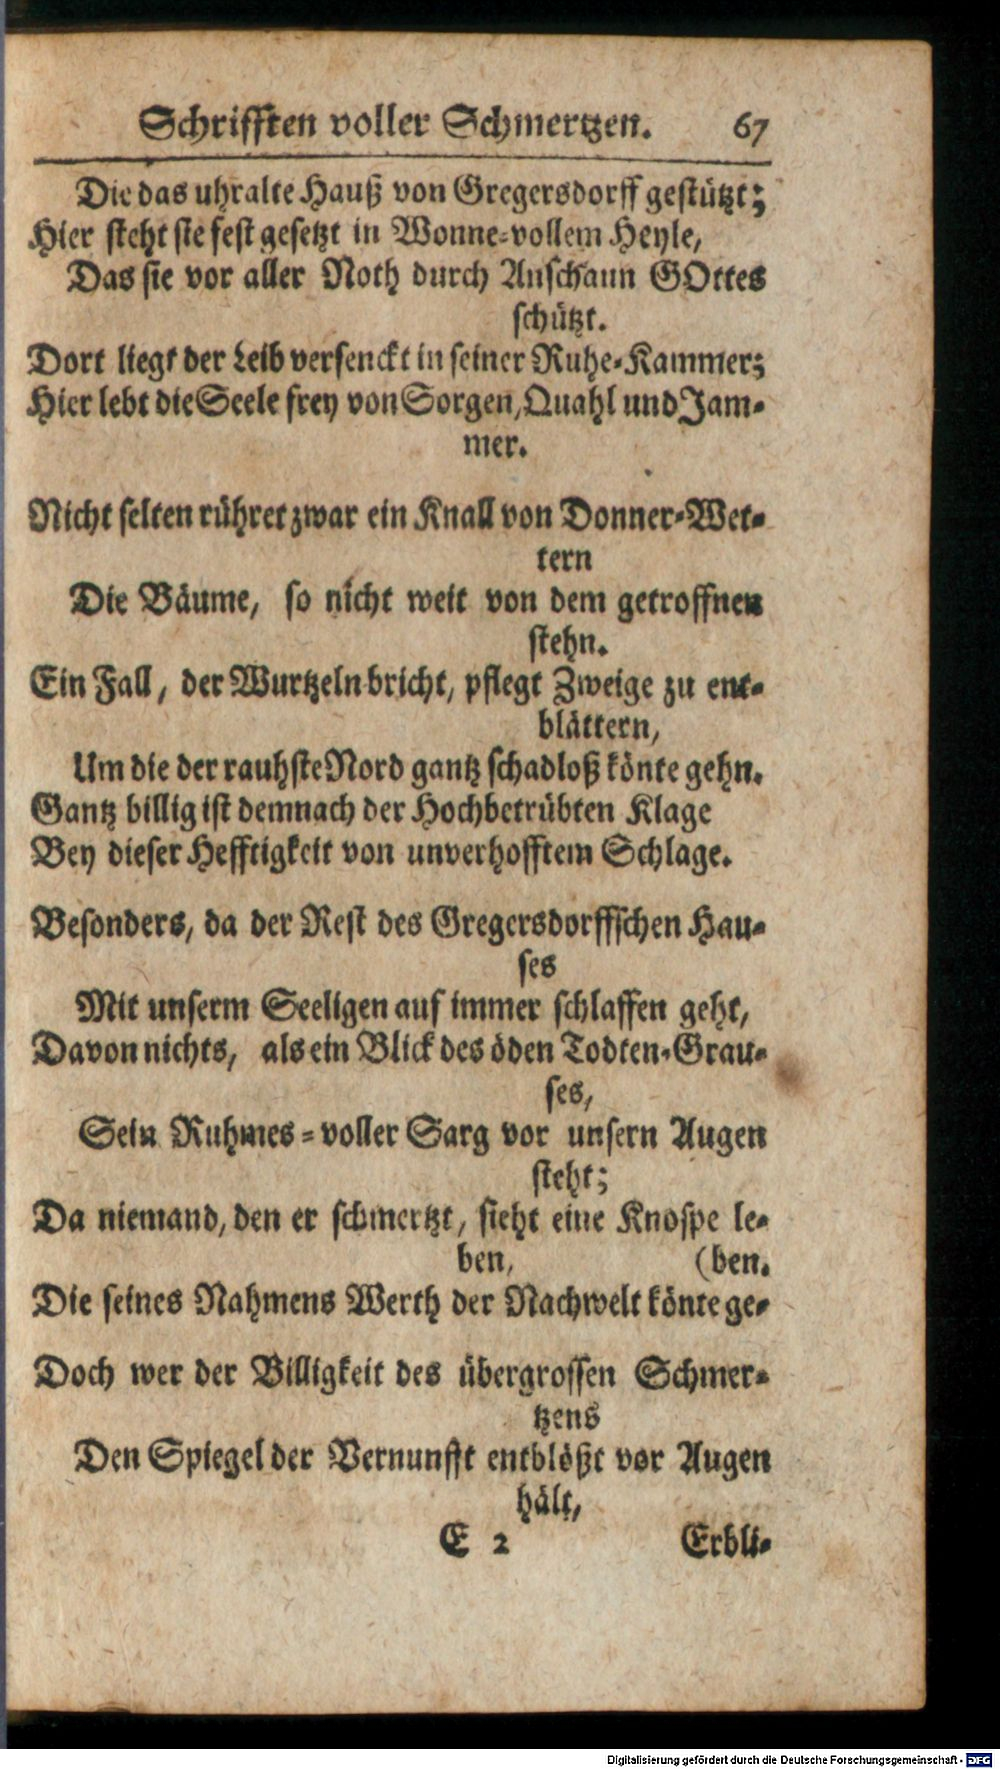 Schrifften voller Schmertzen. 67
Die das uhralte Hauß von Gregersdorff gestützt;
Hier steht sie fest gesetzt in Wonne-vollem Heyle,
Das sie vor aller Noth durch Anschaun GOttes
schützt.
Dort liegt der Leib versenckt in seiner Ruhe-Kammer;
Hier lebt die Seele frey von Sorgen, Quahl und Jam-
mer.
Nicht selten rühret zwar ein Knall von Donner-Wet-
tern
Die Bäume, so nicht weit von dem getroffnen
stehn.
Ein Fall, der Wurtzeln bricht, pflegt Zweige zu ent-
blättern,
Um die der rauhste Nord gantz schadloß könte gehn.
Gantz billig ist demnach der Hochbetrübten Klage
Bey dieser Hefftigkeit von unverhofftem Schlage.
Besonders, da der Rest des Gregersdorffschen Hau-
ses
Mit unserm Seeligen auf immer schlaffen geht,
Davon nichts, als ein Blick des öden Todten-Grau-
ses,
Sein Ruhmes-voller Sarg vor unsern Augen
steht;
Da niemand, den er schmertzt, sieht eine Knospe le-
ben, (ben.
Die seines Nahmens Werth der Nachwelt könte ge-
Doch wer der Billigkeit des übergrossen Schmer-
tzens
Den Spiegel der Vernunfft entblößt vor Augen
hält,
E 2 Erbli-
Digitalisierung gefördert durch die Deutsche Forschungsgemeinschaft - DFG